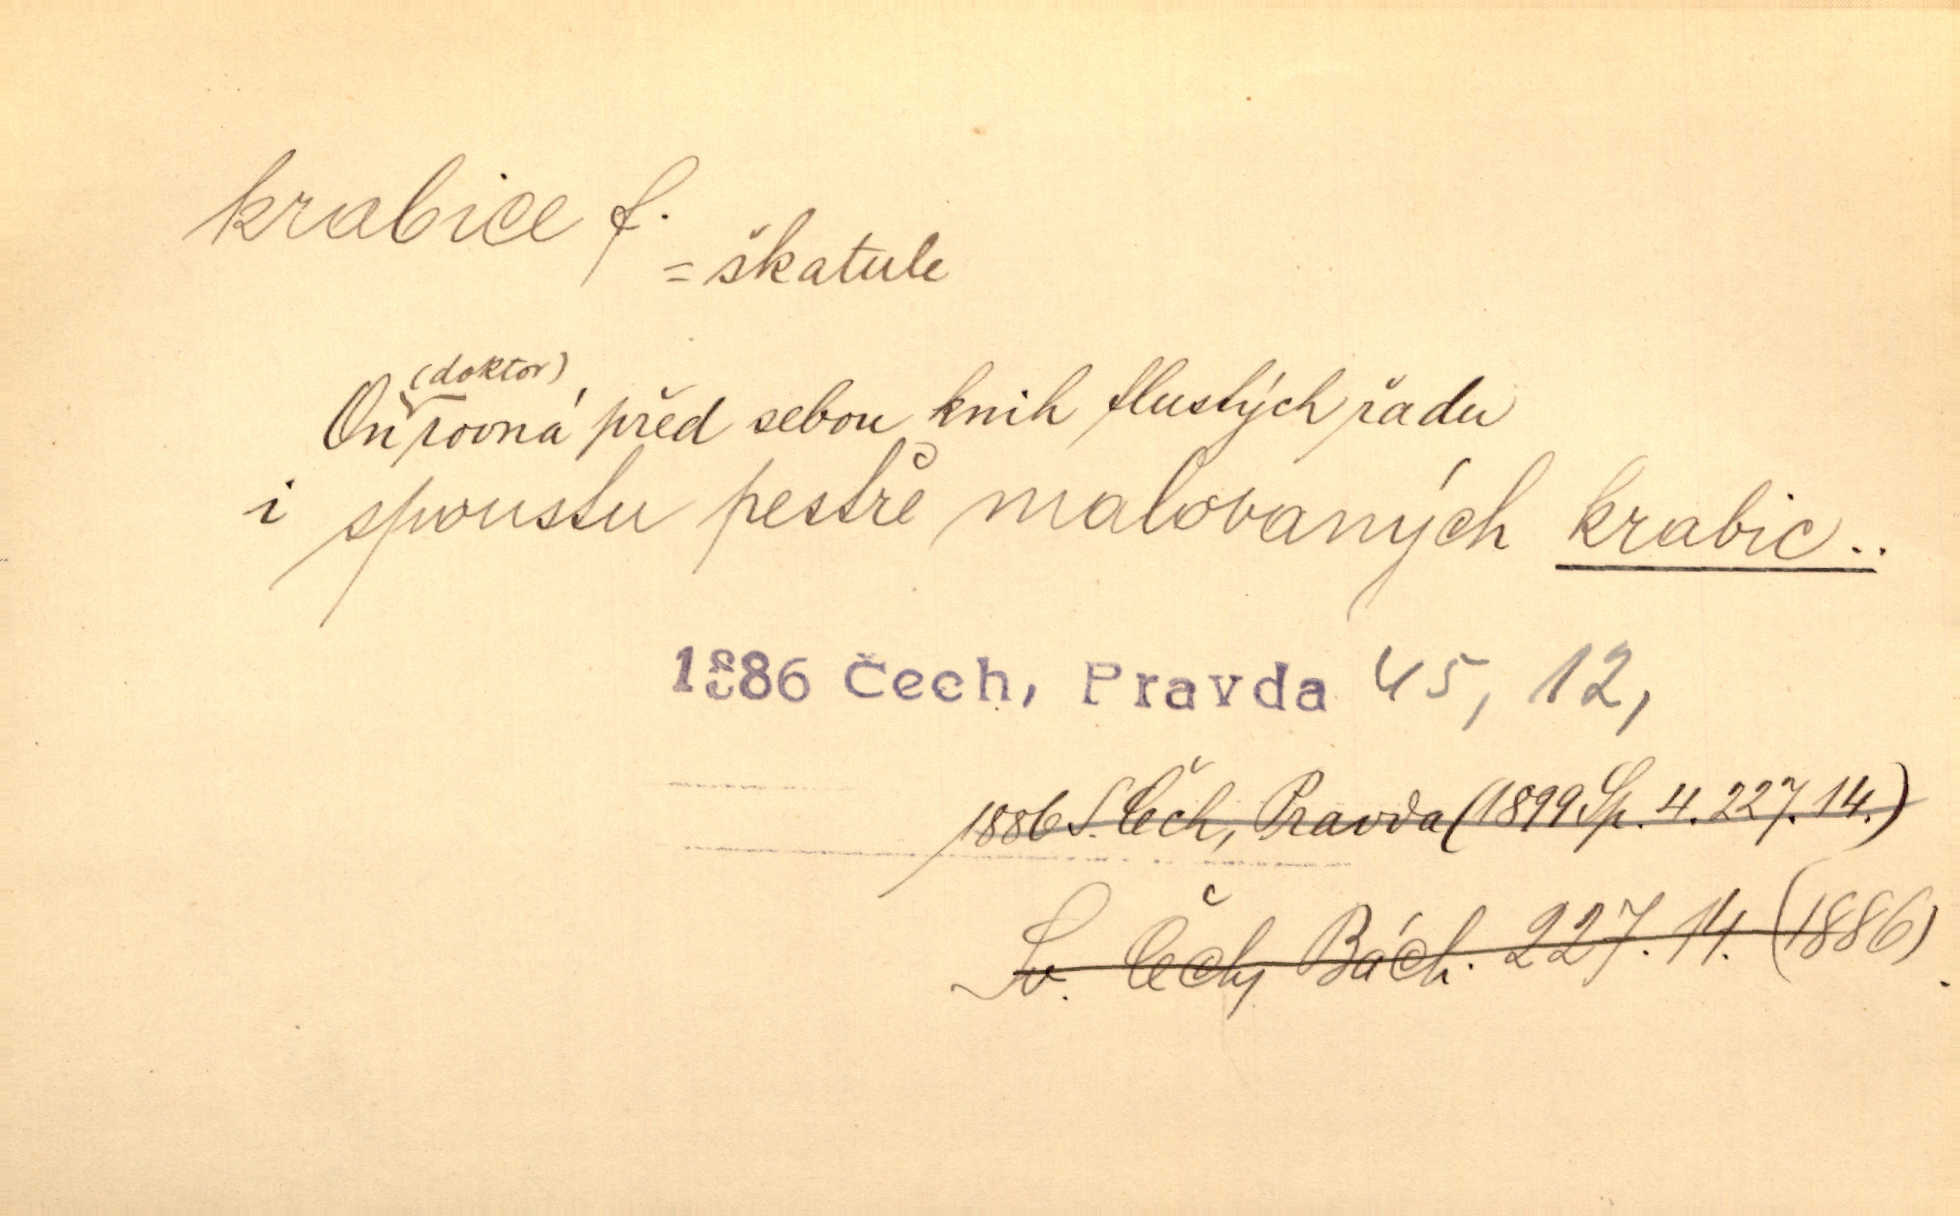 krabice f.
= škatule
(doktor)
On rovná před sebou knih tlustých řadu
i spoustu pestře malovaných krabic..
1886 Čech, Pravda 45, 12,
1886 S. Čech, Pravda (1899 Sp. 4. 227. 14.)
Sv. Čech, Bách. 227. 14. (1886).